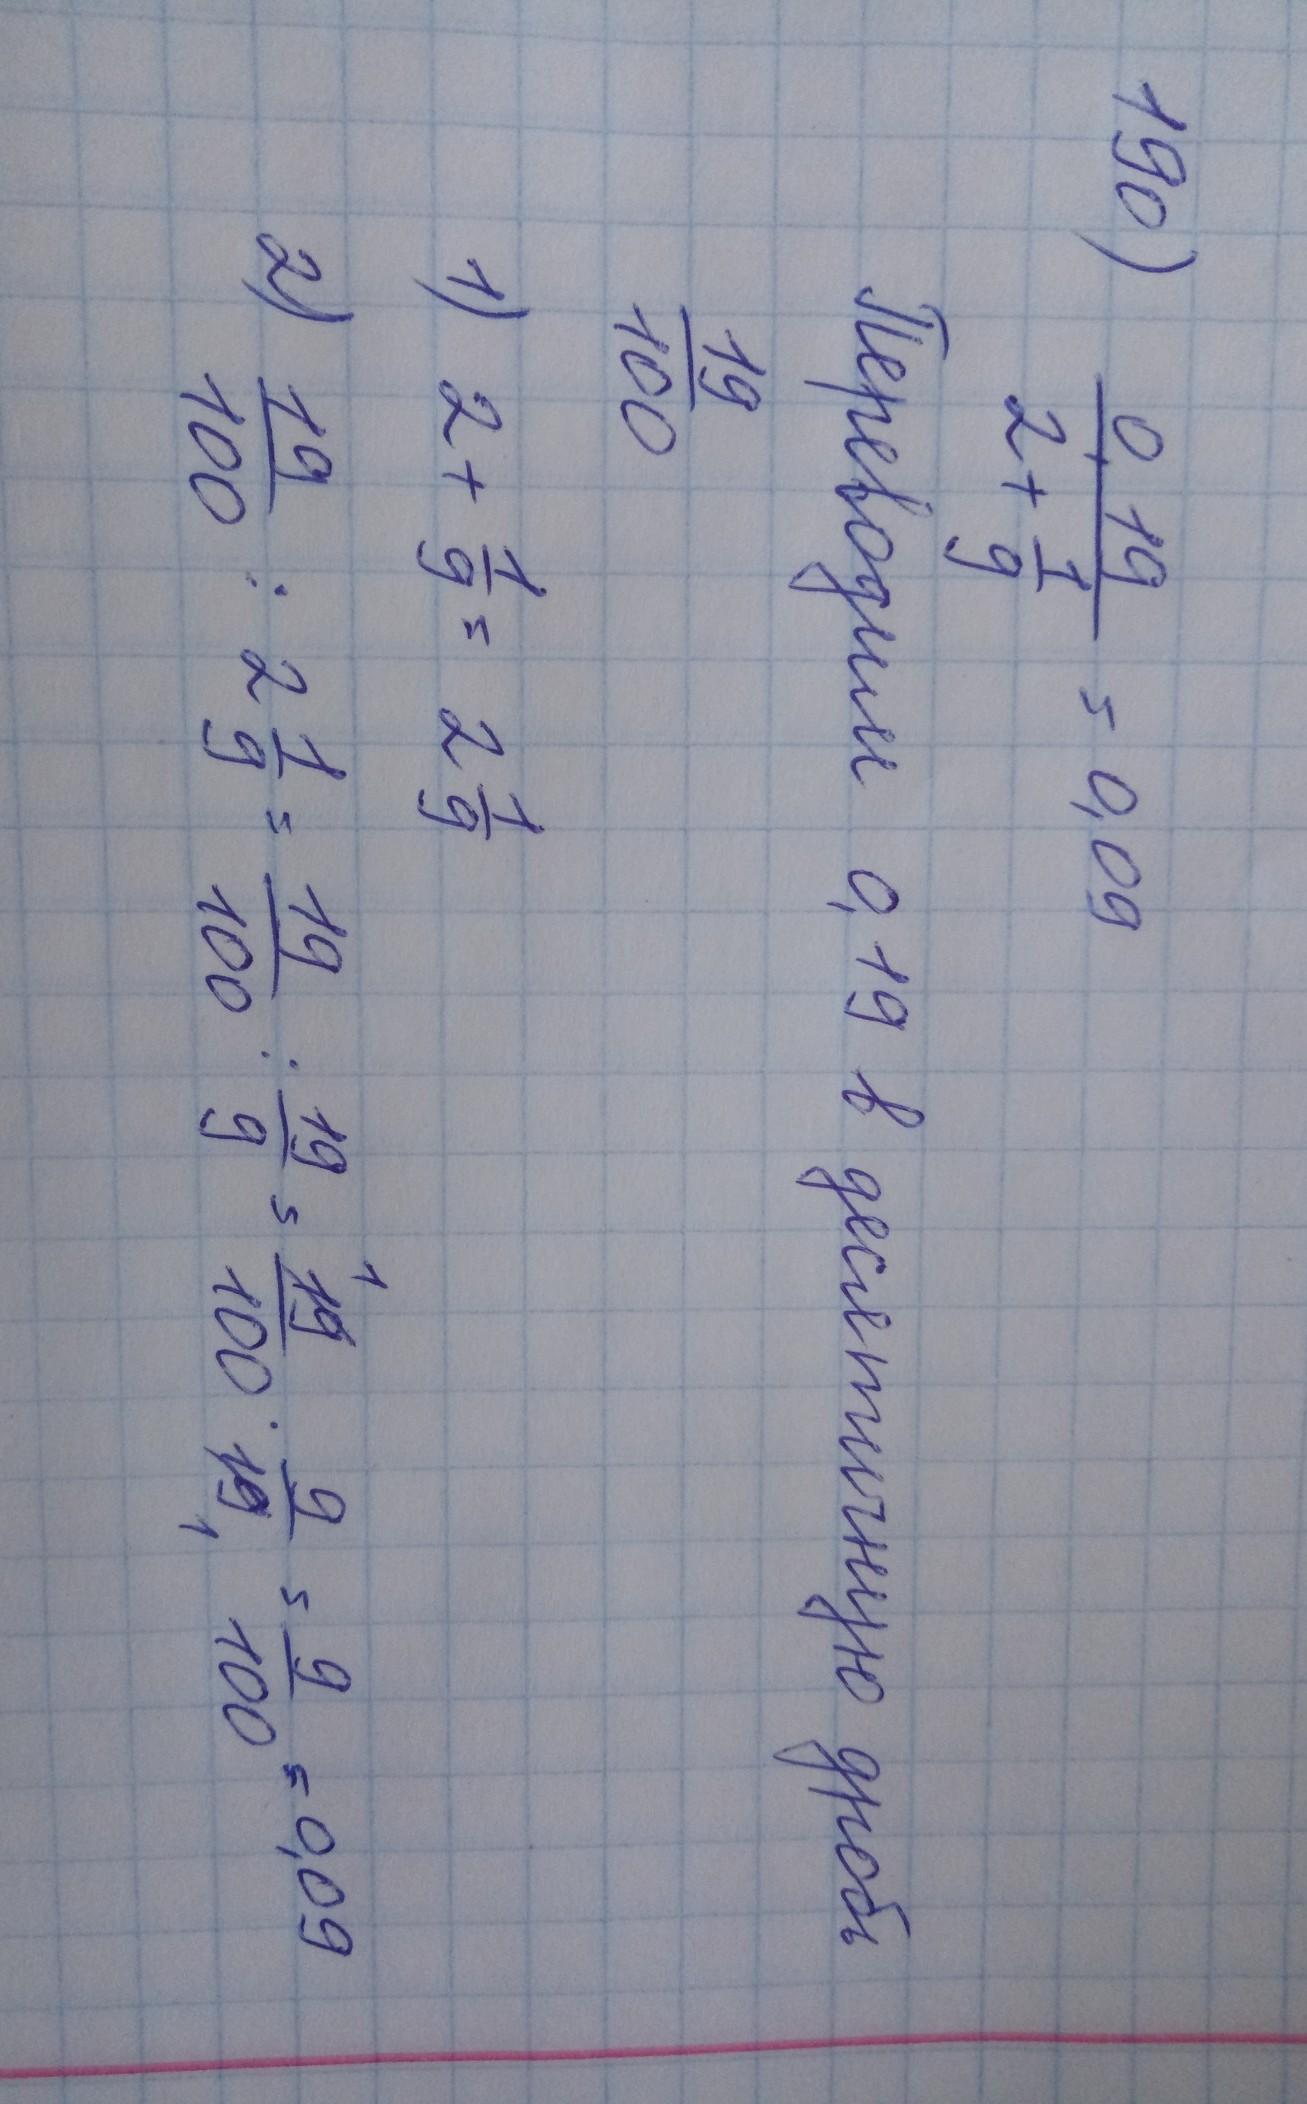 190) 0,19/(2 + 1/9) = 0,09
Переводим 0,19 в десятичную дробь
19/100
1) 2 + 1/9 = 2 1/9
2) 19/100 : 2 1/9 = 19/100 : 19/9 = 19¹/100 · 9/19₁ = 9/100 = 0,09